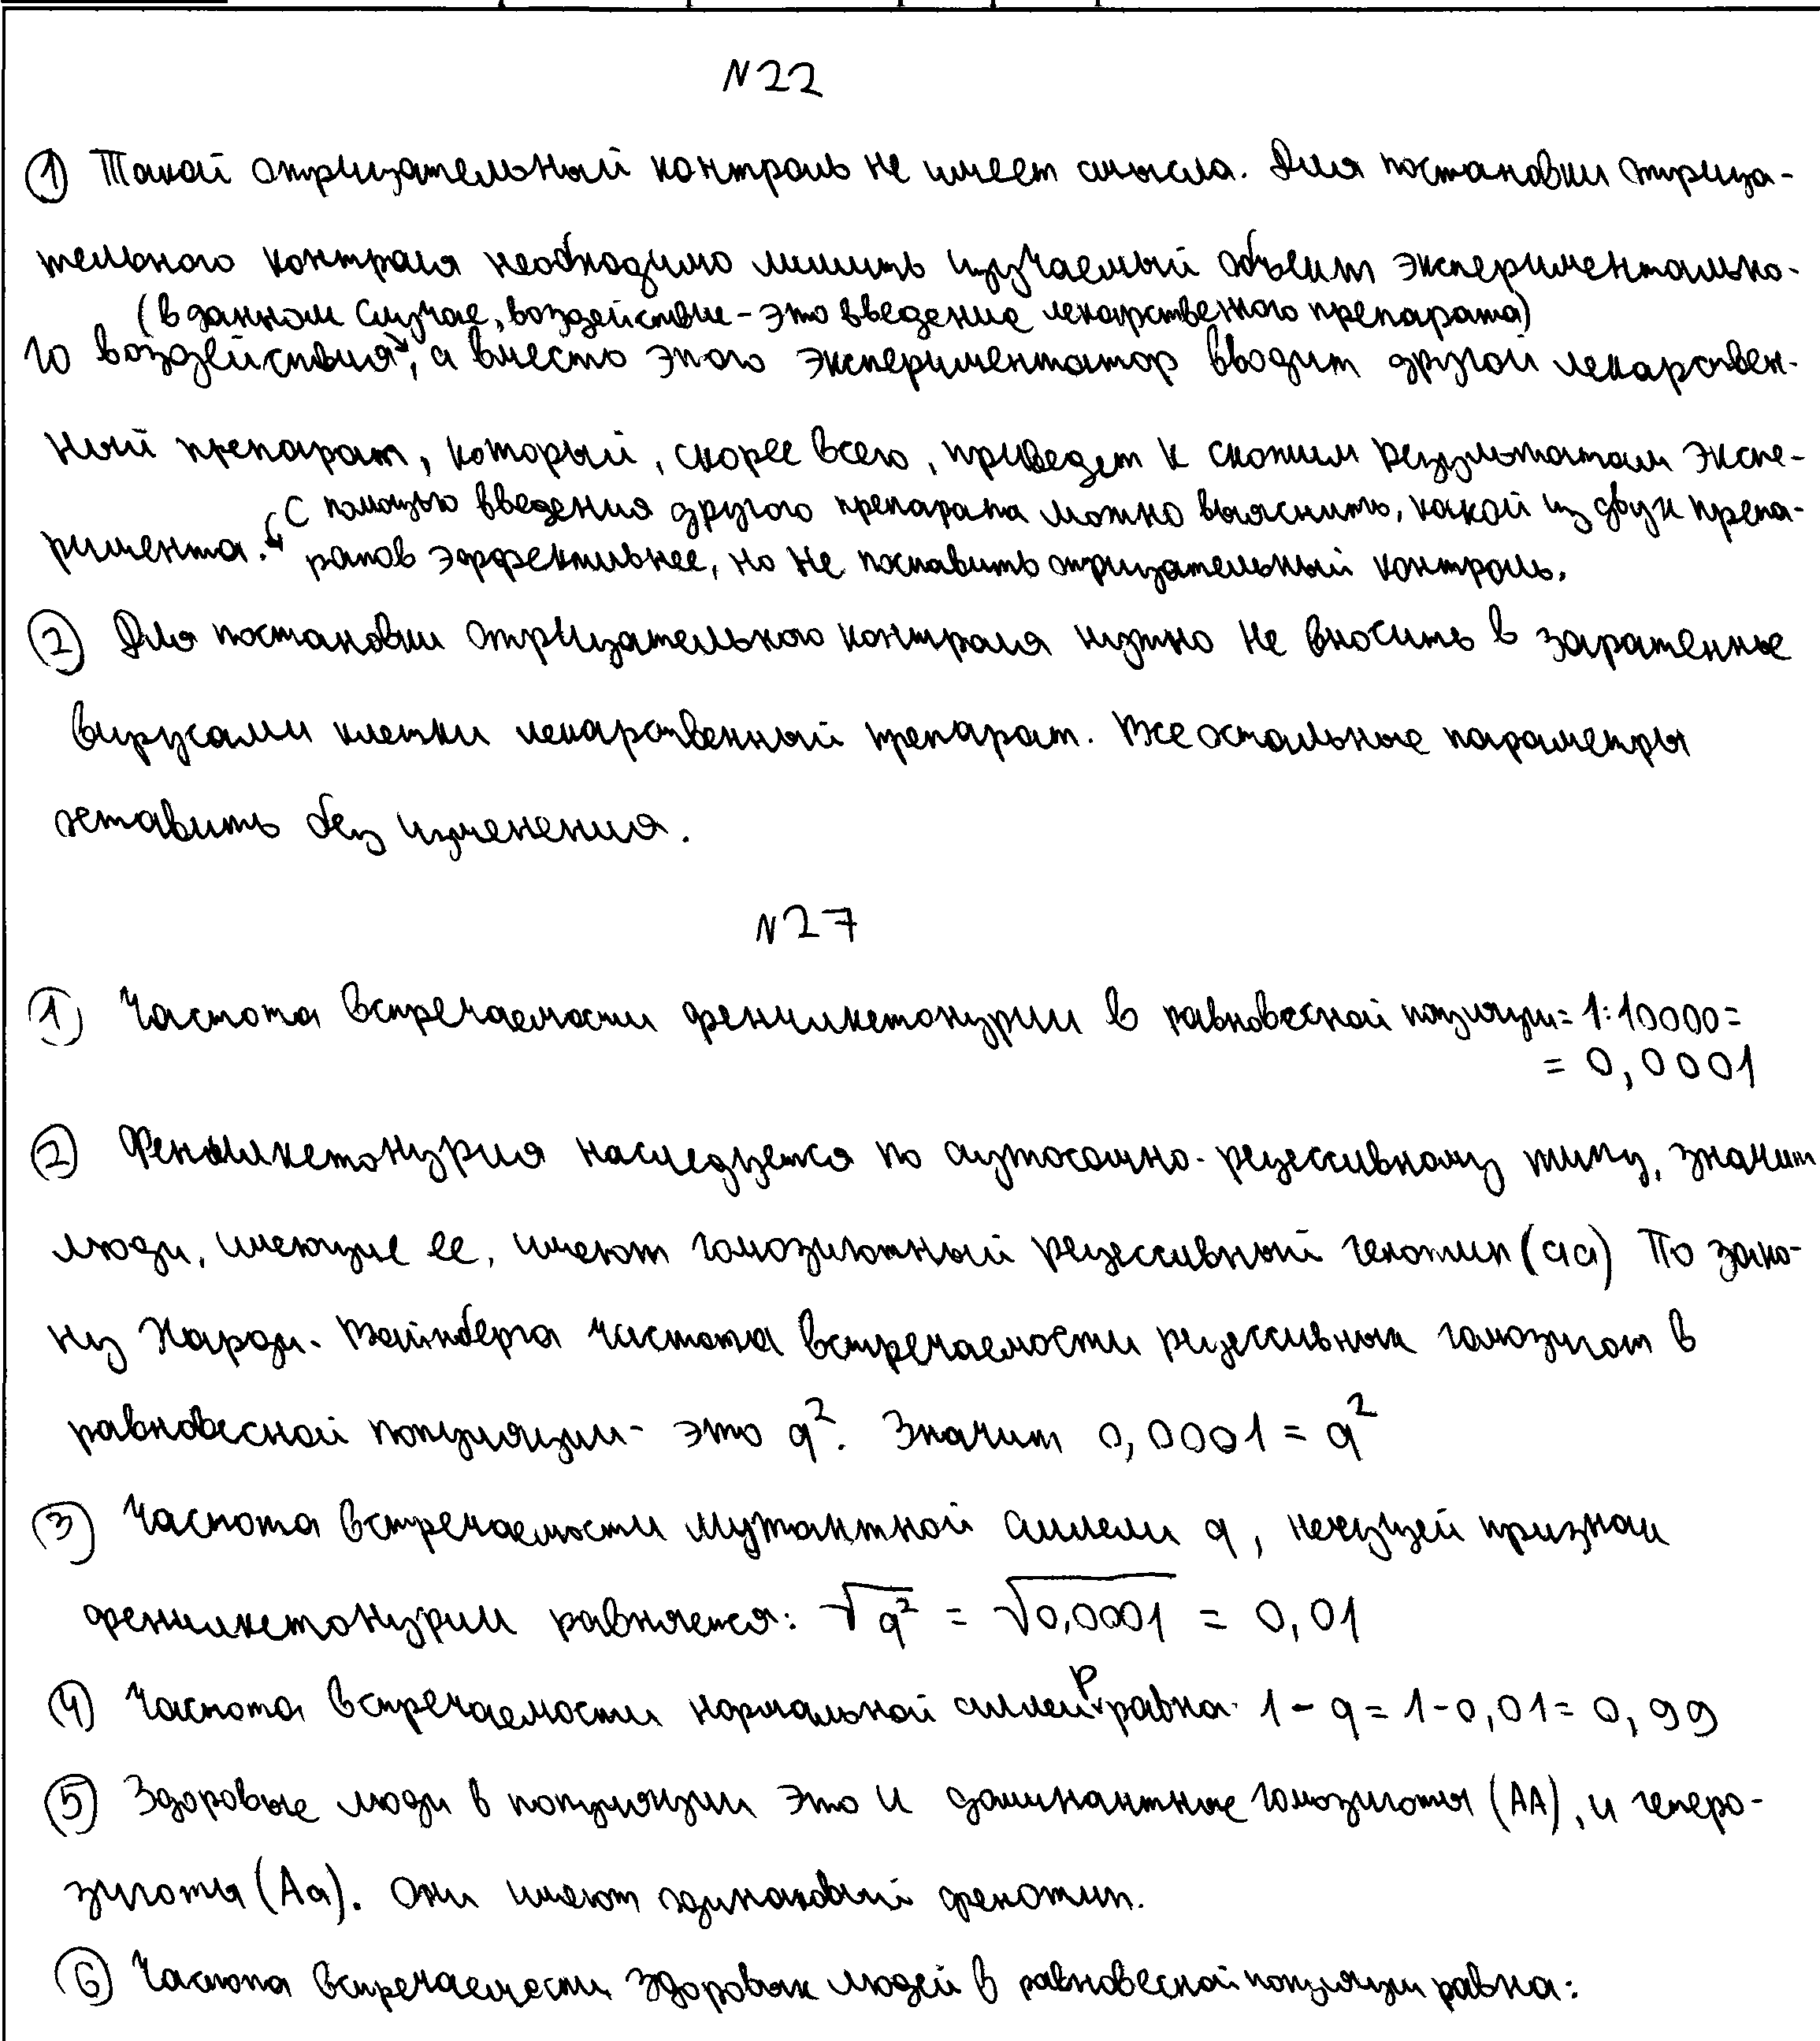 N22
① Такой отрицательный контроль не имеет смысла. Для постановки отрица-
тельного контроля необходимо лишить изучаемый объект экспериментально-
(в данном случае, воздействие - это введение лекарственного препарата)
го воздействия, а вместо этого экспериментатор вводит другой лекарствен-
ный препарат, который, скорее всего, приведет к схожим результатам экспе-
С помощью введения другого препарата можно выяснить, какой из двух препа-
римента. ратов эффективнее, но не поставить отрицательный контроль.
② Для постановки отрицательного контроля нужно не вносить в зараженные
вирусами клетки лекарственный препарат. Все остальные параметры
оставить без изменения.
N27
① Частота встречаемости фенилкетонурии в равновесной популяции = 1:10000 =
= 0,0001
② Фенилкетонурия наследуется по аутосомно-рецессивному типу, значит
люди, имеющие ее, имеют гомозиготный рецессивный генотип (aa) По зако-
ну Харди-Вайнберга частота встречаемости рецессивных гомозигот в
равновесной популяции - это q². Значит 0,0001 = q²
③ Частота встречаемости мутантной аллели q, несущей признак
фенилкетонурии равняется: √q² = √0,0001 = 0,01
④ Частота встречаемости нормальной аллели p равна 1 - q = 1 - 0,01 = 0,99
⑤ Здоровые люди в популяции это и доминантные гомозиготы (AA), и гетеро-
зиготы (Aa). Они имеют одинаковый фенотип.
⑥ Частота встречаемости здоровых людей в равновесной популяции равна: